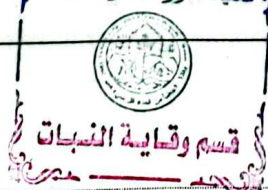 قسم وقاية النبات